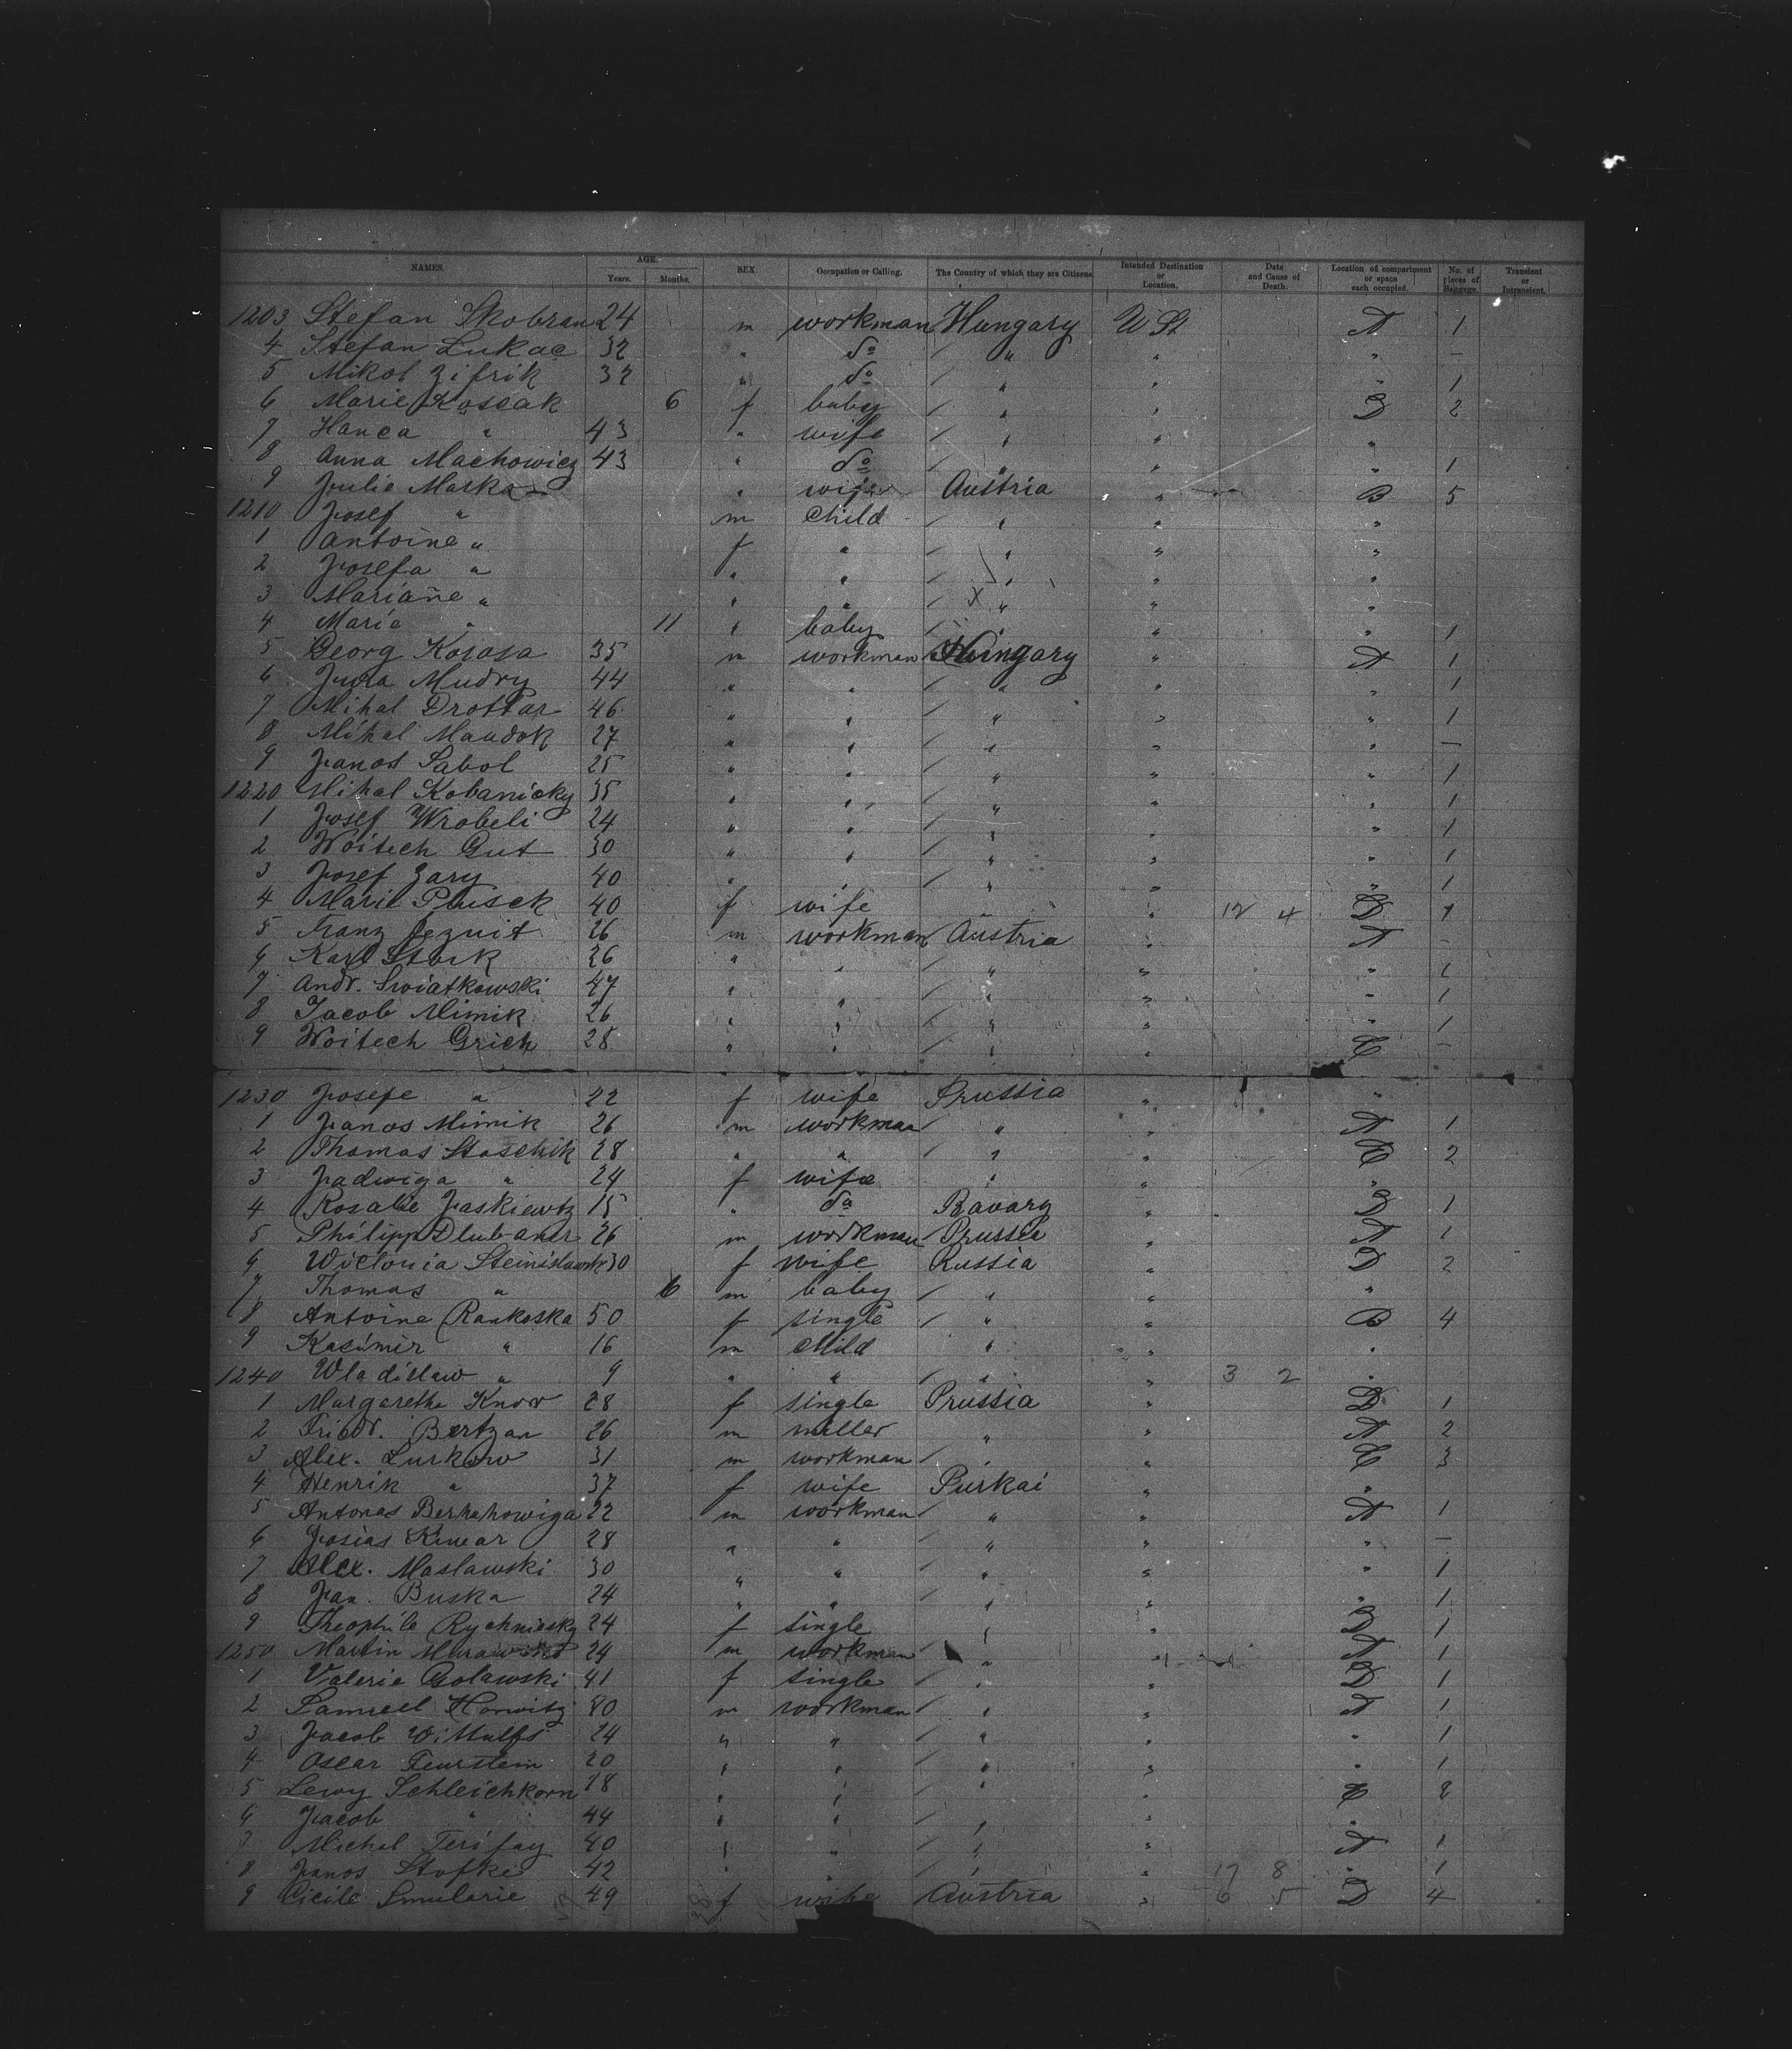 NAMES. AGE. Years. Months. SEX. Occupation or Calling. The Country of which they are Citizens. Intended Destination or Location. Date and Cause of Death. Location of compartment or space each occupied. No. of pieces of Baggage. Transient or Intransient.
1203 Stefan Skobran 24 m workman Hungary U St A 1
4 Stefan Lukac 32 " do " " " —
5 Mikol Zifrik 32 " do " " " 1
6 Marie Koscak 6 f baby " " D 2
7 Hanca " 43 " wife " " "
8 Anna Machowicz 43 " do " " " 1
9 Julie Marka " wife Austria " B 5
1210 Josef " m child " " "
1 Antoine " f " " " "
2 Josefa " " " " " "
3 Mariane " " " " " "
4 Maria " 11 " baby " " " 1
5 Georg Kosasa 35 m workman Hungary " A 1
6 Jura Mudry 44 " " " " " 1
7 Mihal Drottar 46 " " " " " 1
8 Mihal Maudok 27 " " " " " —
9 Janos Sabol 25 " " " " " 1
1220 Mihal Kobanicky 35 " " " " " 1
1 Josef Wrobeli 24 " " " " " 1
2 Woitech Gut 30 " " " " " 1
3 Josef Zary 40 " " " " " 1
4 Marie Plusek 40 f wife " " 12 4 D 1
5 Franz Jezuit 26 m workman Austria " A –
6 Karl Stark 26 " " " " " 1
7 Andr. Swiatkowski 47 " " " " " 1
8 Jacob Mimik 26 " " " " " 1
9 Woitech Grich 28 " " " " C –
1230 Josefe " 22 f wife Prussia " "
1 Janos Mimik 26 m workman " " A 1
2 Thomas Staschik 28 " " " " C 2
3 Jadwiga " 24 f wife " " "
4 Rosalie Jaskiewtz 15 " do Bavary " D 1
5 Philipp Dlubaner 26 m workman Prussia " A 1
6 Wictonia Steinislawsk 30 f wife Russia " D 2
7 Thomas " 6 m baby " " "
8 Antoine Rankoska 50 f single " " B 4
9 Kasimir " 16 m child " " "
1240 Wladislaw " 9 " " " " 3 2 "
1 Margarethe Knorr 28 f single Prussia " D 1
2 Friedr. Bertzan 26 m miller " " A 2
3 Alex. Lurkow 31 m workman " " C 3
4 Henrik " 37 f wife Purkai " "
5 Antonas Berkahowiga 22 m workman " " A 1
6 Josias Kinear 28 " " " " " —
7 Alex. Maslawski 30 " " " " " 1
8 Jan. Buska 24 " " " " " 1
9 Theophile Rychniesky 24 f single " " D 1
1250 Martin 24 m workman " " A 1
1 Valerie Golawski 41 f single " " D 1
2 Samuel Horwitz m workman " " A 1
3 Jacob 24 " " " " " 1
4 Oscar Feurstein 20 " " " " " 1
5 Lewy Schleichkorn 18 " " " " C 2
6 Jacob " 44 " " " " "
7 Michal Terifay 40 " " " " A 1
8 Janos Stofke 42 " " " " 17 8 " 1
9 Cicile Smularie 49 f wife Austria " 6 5 D 4